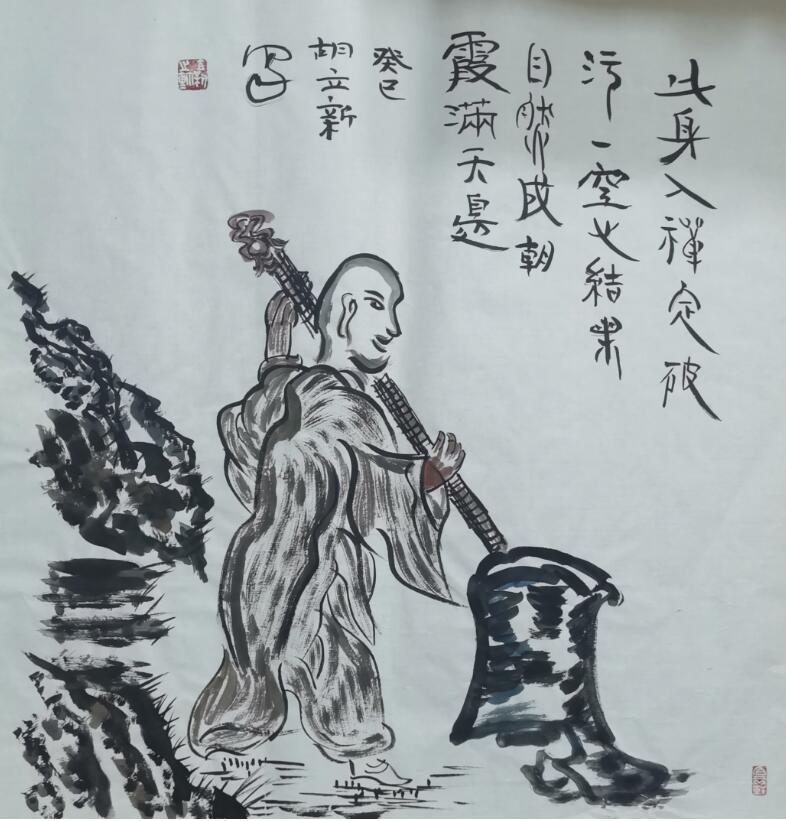 此身入禪定破
污一空也結果
自然成朝
霞滿天邊
癸巳
胡立新
写